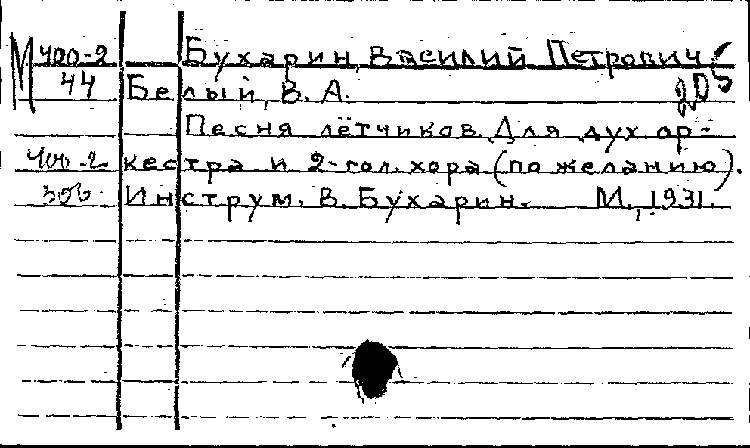 М 400-2 Бухарин, Василий Петрович
44 Белый, В. А.
Песня лётчиков. Для дух. ор-
400-2 кестра и 2-гол. хора (по желанию).
Инструм. В. Бухарин. М., 1931.